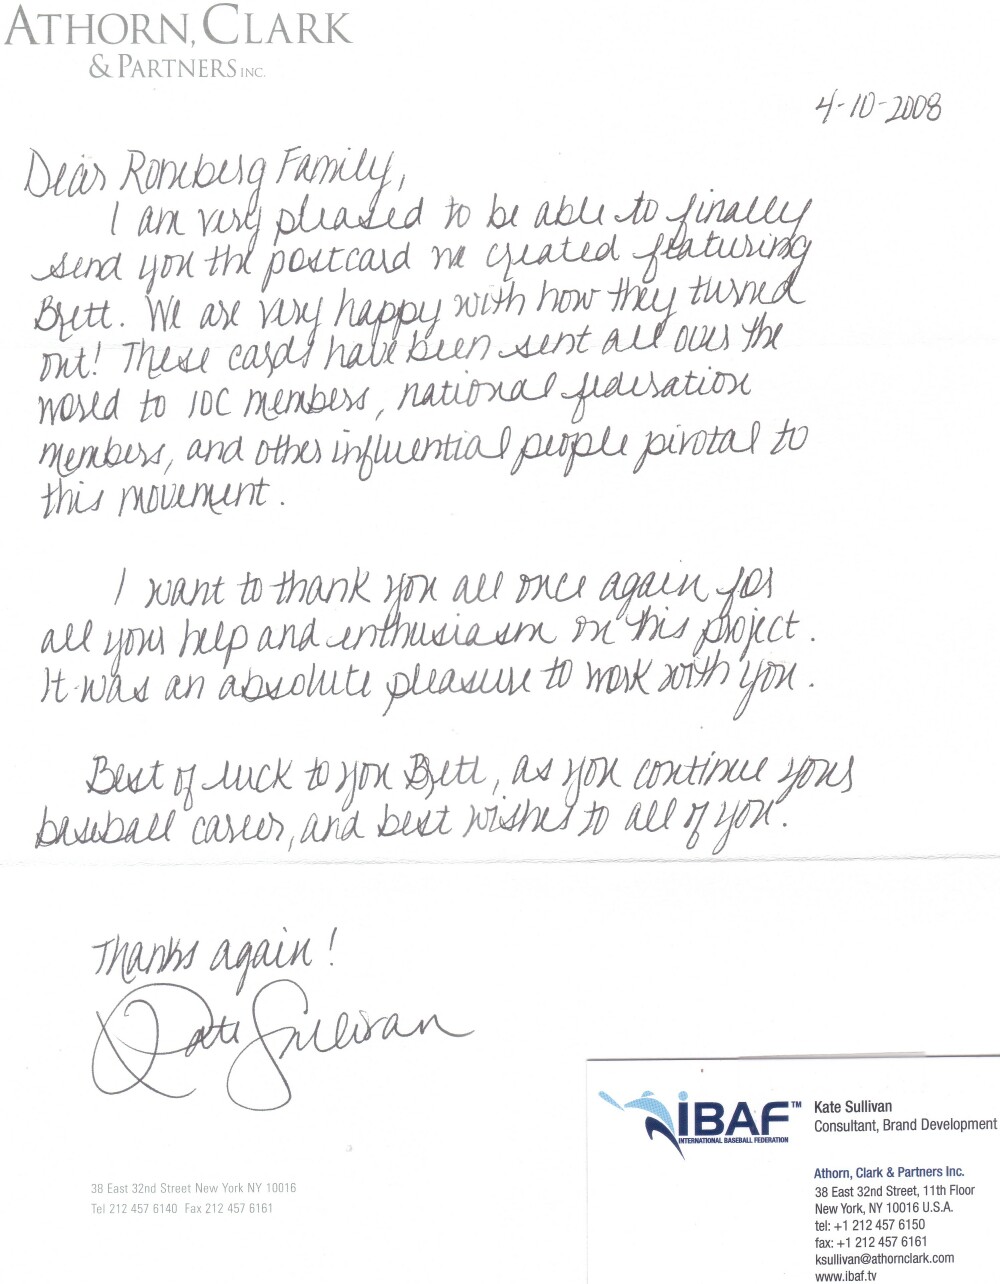 ATHORN, CLARK
& PARTNERS INC.
4-10-2008
Dear Roneberg Family,
I am very pleased to be able to finally
send you the postcard we created featuring
Brett. We are very happy with how they turned
out! These cards have been sent all over the
world to IOC members, national federation
members, and other influential people pivotal to
this movement.
I want to thank you all once again for
all your help and enthusiasm on this project.
It was an absolute pleasure to work with you.
Best of luck to you Brett, as you continue your
baseball career, and best wishes to all of you.
Thanks again!
Kate Sullivan
38 East 32nd Street New York NY 10016
Tel 212 457 6140 Fax 212 457 6161
iBAF™
INTERNATIONAL BASEBALL FEDERATION
Kate Sullivan
Consultant, Brand Development
Athorn, Clark & Partners Inc.
38 East 32nd Street, 11th Floor
New York, NY 10016 U.S.A.
tel: +1 212 457 6150
fax: +1 212 457 6161
ksullivan@athornclark.com
www.ibaf.tv